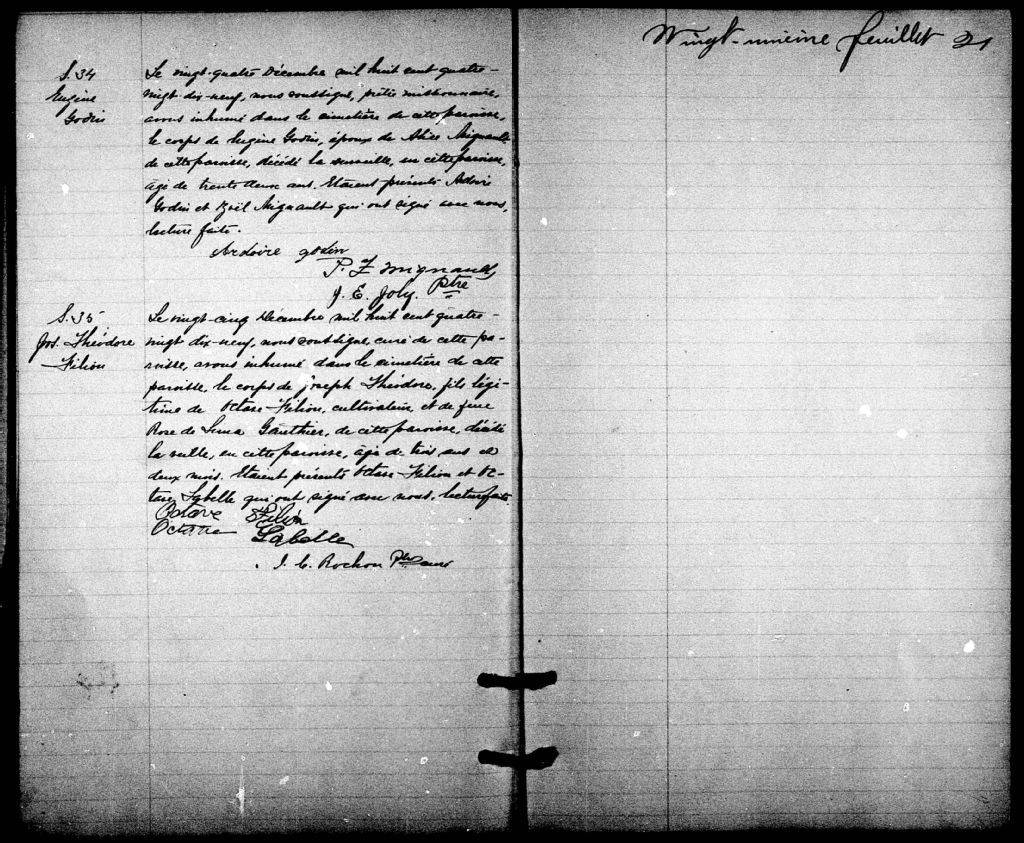 S. 34
Eugène
Godin
Le vingt-quatre Décembre mil huit cent quatre-
vingt dix-neuf, nous soussigné, prêtre missionnaire,
avons inhumé dans le cimetière de cette paroisse,
le corps de Eugène Godin, époux de Alice Mignault
de cette paroisse, décédé la surveille, en cette paroisse,
âgé de trente deux ans. Etaient présents
Godin et Mignault qui ont signé avec nous,
lecture faite.
Ardoire godin
P. Z mignault
J. E. Joly. Ptre
S. 35
Jos. Théodore
Filion
Le vingt-cinq Décembre mil huit cent quatre-
vingt dix-neuf, nous soussigné, curé de cette pa-
roisse, avons inhumé dans le cimetière de cette
paroisse, le corps de Joseph Théodore, fils légi-
time de Octave Filion, cultivateur, et de feue
Rose de Lima Gauthier, de cette paroisse, décédé
la veille, en cette paroisse, âgé de trois ans et
deux mois. Etaient présents Octave Filion et Oc-
tave Labelle qui ont signé avec nous. Lecture faite.
Octave Filion
Octave Labelle
J. C. Rochon Ptre curé
Vingt-unième feuillet 21